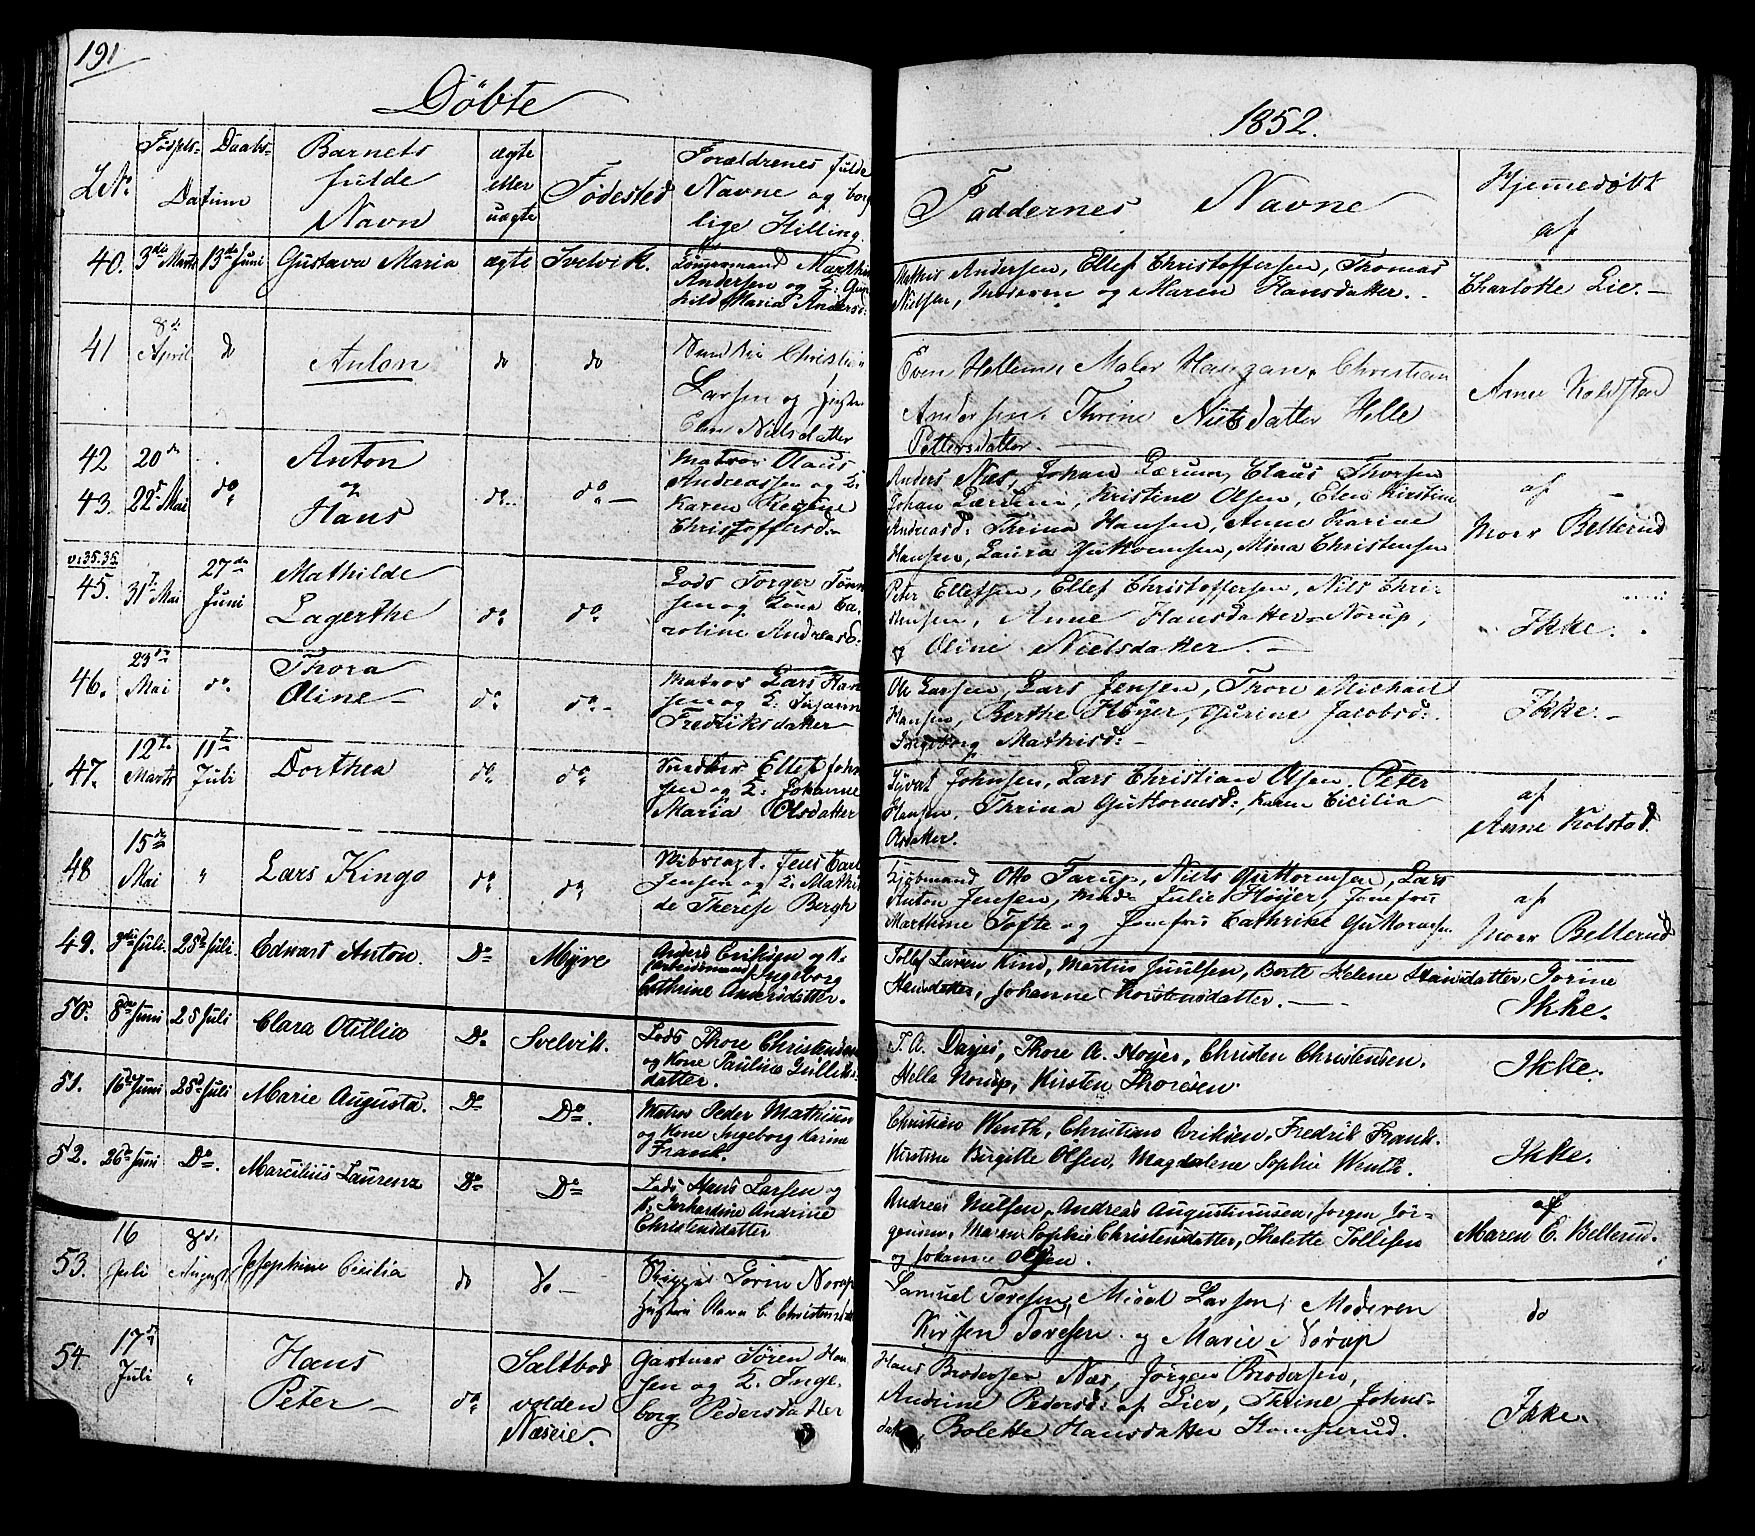 191
Døbte
1852.
LN.
Fødsels-
Daabs-
Datum
Barnets
fulde
Navn
ægte
eller
uægte
Fødested
Forældrenes fulde
Navne og borg
lige Stilling
Faddernes Navne
Hjemmedøbt
af
40. 3die Marts 13de Juni Gustava Maria ægte Svelvik.
Tømmermand Matthis
Andersen og K: Gun
hild Maria Andersd:
Mathis Andersen, Ellef Christoffersen, Thomas
Nielsen, Moderen og Maren Hansdatter.
Charlotte Lie.
41 8de April do Anton do do
Snedker Christian
Larsen og Hustru
Elen Nielsdatter
Even Hellum, Maler Haugan, Christian
Andersen, Thrine Nielsdatter Helle
Pettersdatter
Anne Kolstad
42 20de
43. 22de Mai do
Anton
og
Hans
do. do.
Matros Olaus
Andreassen og K:
Karen Regine
Christoffersd.
Anders Næs, Johan Lærum, Claus Thorsen
Johan Lærum, Kristine Olsen, Elen Kirstine
Andreasd: Thrina Hansen, Anne Karine
Hansen, Laura Guttormsen, Mina Christensen
af
Moer Bellerud
v: 35.35.
45. 31te Mai 27de Juni
Mathilde
Lagerthe
do. do.
Lods Torger Tønne
sen og Kone Ca-
roline Andreasd:
Peter Ellefsen, Ellef Christoffersen, Nils Chri-
stensen, Anne Hansdatter Norup,
og Oline Nielsdatter.
Ikke.
46. 23de Mai do.
Thora
Oline
do. do.
Matros Lars Han
sen og K: Susanne
Fredriksdatter
Ole Larsen, Lars Jensen, Thore Michael
Hansen, Berthe Høyer, Gurine Jacobsd:
Ingeborg Mathisd:
Ikke.
47. 12te Marts 11te Juli
Dorthea
do. do.
Snedker Ellef John
sen og K: Johanne
Maria Olsdatter
Syvert Johnsen, Lars Christian Olsen, Peter
Hansen, Thrina Guttormsd:, Karen Cicilia
Olsdatter.
af
Anne Kolstad.
48 15de Mai "
Lars Kingo
do. do.
Skibscapt. Jens Carl
Jensen og K: Mathil
de Therese Bergh
Kjøbmand Otto Tarup, Niels Guttormsen, Lars
Anton Jensen, Mad: Julie Høyer, Jomfru
Marthine Tofte og Jomfru Cathrine Guttormsen
af
Moer Bellerud
49. 3die Juli. 25de Juli. Edvart Anton. Do Myre
Anders Eriksen og K.
Arbeidsmand Ingeborg
Cathrine Andersdatter.
Tollef Larsen Kind, Martin Juulsen, Berte Helene Hansdatter, Gorine
Hansdatter, Johanne Thorstensdatter.
Ikke.
50. 8de Juni 25 Juli Clara Otillia Do. Svelvik.
Lods Thore Christensen
og Kone Pauline Gulliks-
datter.
T. A. Darjes, Thore A. Høyer, Christen Christensen.
Helle Norup, Kirsten Thoresen.
Ikke.
51. 16de Juni 25de Juli Marie Augusta. Do Do.
Matros Peder Mathisen
og Kone Ingeborg Karine
Frank.
Christian Wenth, Christian Eriksen, Fredrik Frank.
Kirstine Birgitte Olsen, Magdalene Sophie Wenth.
Ikke.
52. 26de Juni Do. Marcilius Laurenz Do Do
Lods Hans Larsen og
K. Gerhardine Andrine
Christensdatter
Andreas Nielsen, Andreas Augustinusen, Jørgen Jør-
gensen, Maren Sophie Christensdatter, Thalette Tollefsen
og Johanne Olsen.
af
Maren E. Bellerud.
53. 16 Juli 8de August Josephine Cecilia do Do
Skipper Sørin Norup
Hustru Anna C. Christensd
Samuel Toresen, Micol Larsen, Moderen
Kirsten Toresen og Marie Norup
do
54. 17de Juli "
Hans
Peter
do.
Saltbod
volden
Næseie.
Gartner Søren Han
sen og K. Inge-
borg Pedersdatter
Hans Brodersen Næs, Jørgen Brodersen,
Andrine Pedersd: af Lier, Thrine Johns-
datter, Bolette Hansdatter Homperud.
Ikke.